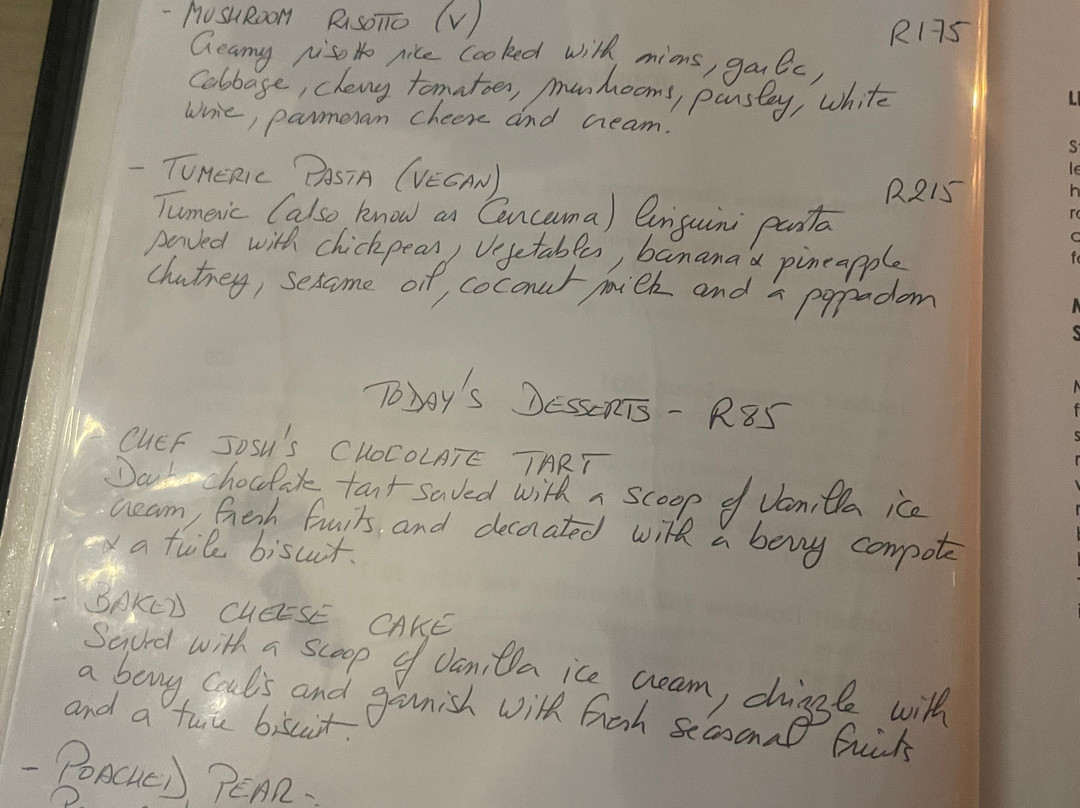 - MUSHROOM RISOTTO (V) R175
Creamy risotto rice cooked with onions, garlic,
cabbage, cherry tomatoes, mushrooms, parsley, white
wine, parmesan cheese and cream.
- TUMERIC PASTA (VEGAN) R215
Tumeric (also know as Curcuma) linguini pasta
served with chickpeas, vegetables, banana & pineapple
chutney, sesame oil, coconut milk and a poppadom
TODAY'S DESSERTS - R85
- CHEF JOSH'S CHOCOLATE TART
Dark chocolate tart served with a scoop of Vanilla ice
cream, fresh fruits and decorated with a berry compote
& a tuile biscuit.
- BAKED CHEESE CAKE
Served with a scoop of Vanilla ice cream, drizzle with
a berry coulis and garnish with fresh seasonal fruits
and a tuile biscuit.
- POACHED PEAR -